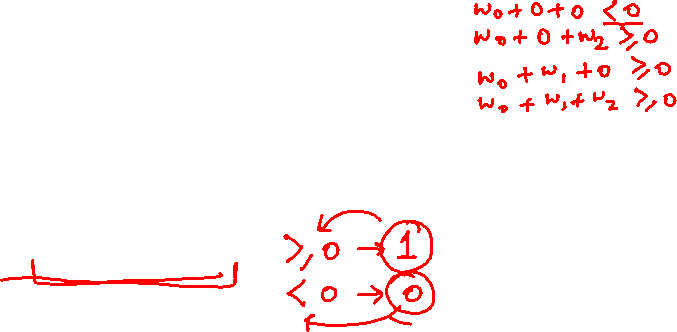 w₀ + 0 + 0 < 0
w₀ + 0 + w₂ ≥, 0
w₀ + w₁ + 0 ≥ 0
w₀ + w₁ + w₂ ≥, 0
≥, 0 → 1
< 0 → 0